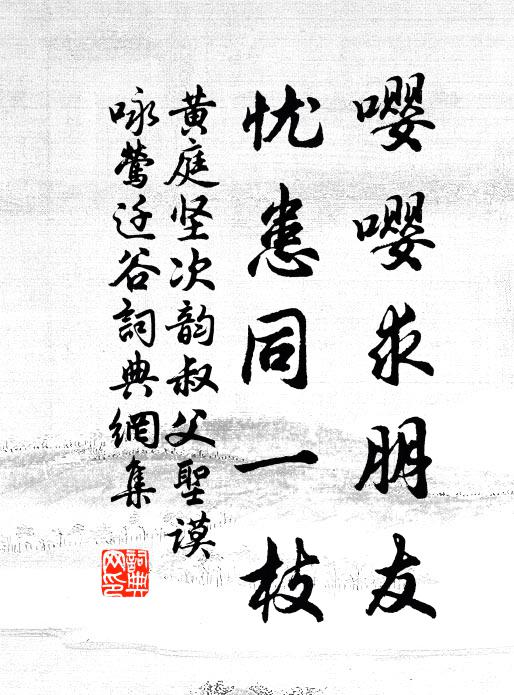 嘤嘤求朋友
忧患同一枝
黄庭坚次韵叔父聖谟
咏鶯迁谷詞典網集
詞典